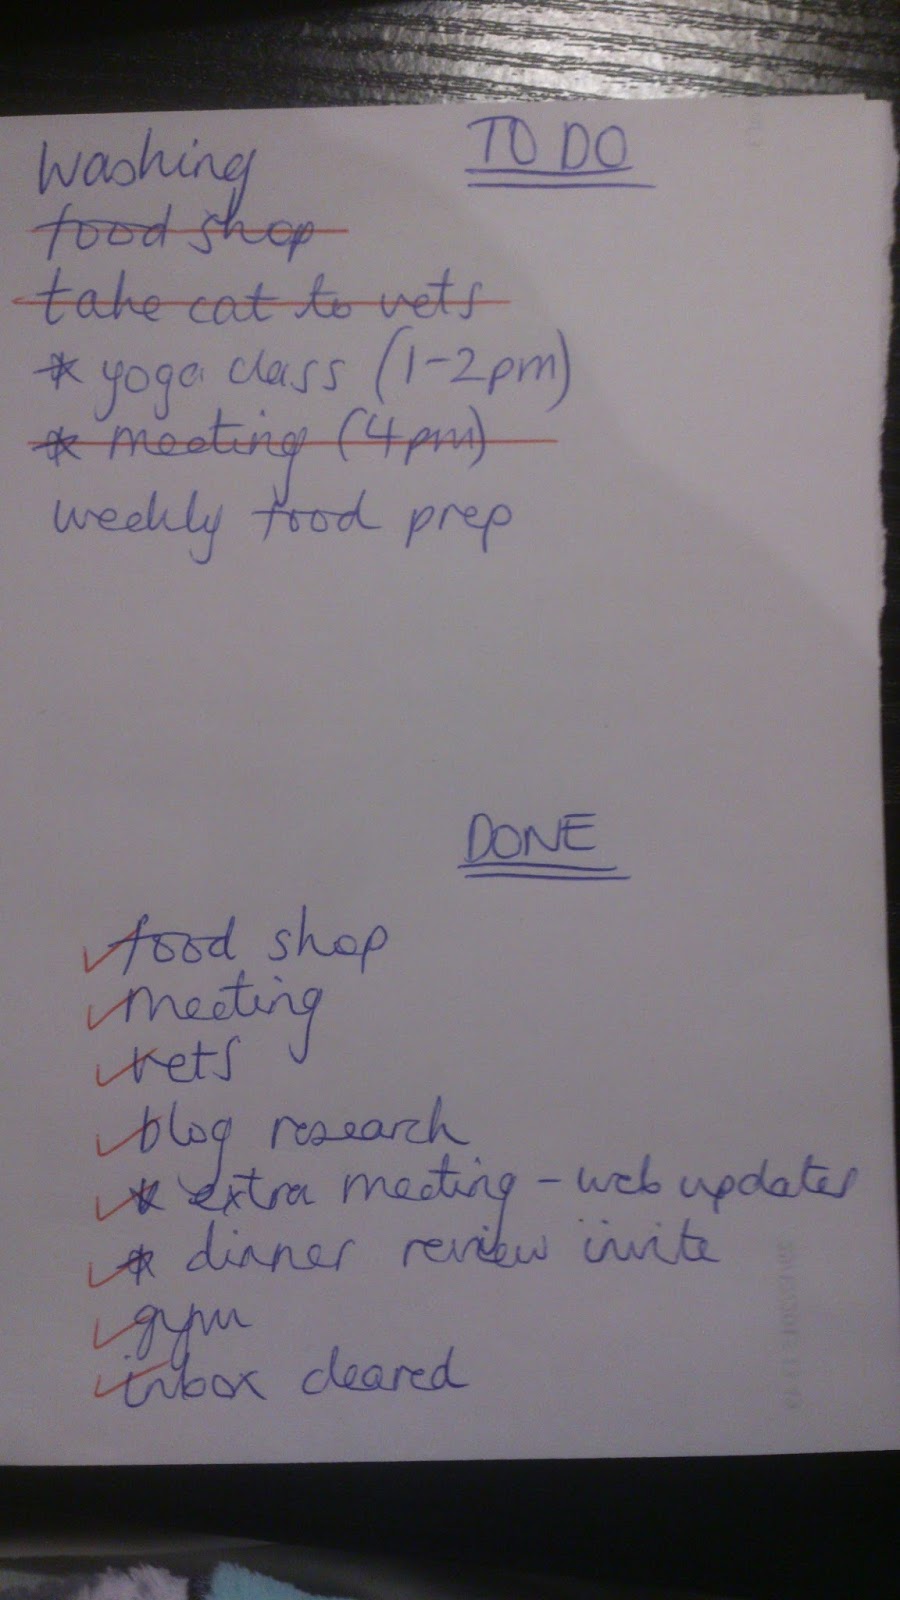 TO DO
Washing
food shop
take cat to vets
* yoga class (1-2pm)
* meeting (4pm)
weekly food prep
DONE
✓ food shop
✓ meeting
✓ vets
✓ blog research
✓ * extra meeting - web updates
✓ * dinner review invite
✓ gym
✓ inbox cleared